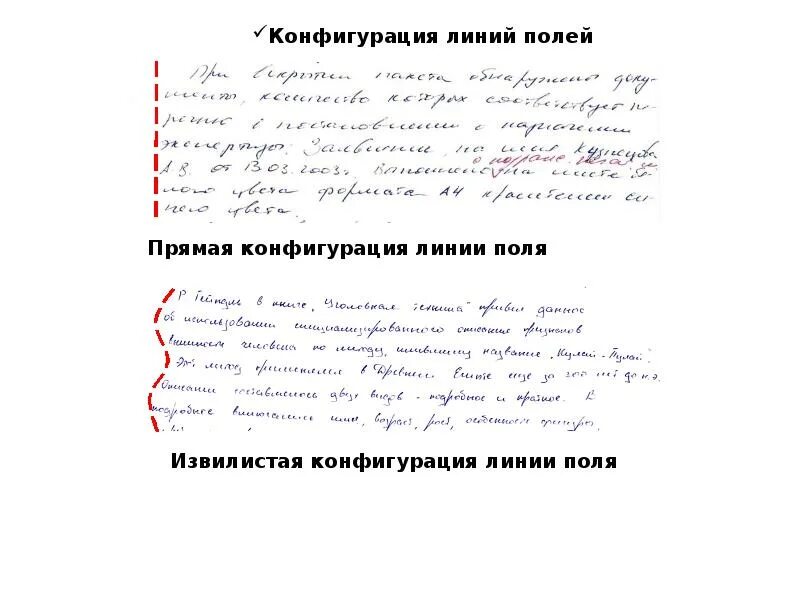 Конфигурация линий полей
При вскрытии пакета обнаружены доку-
менты, количество которых соответствует пе-
речню в постановлении о назначении
экспертизы: Заявление, на имя Кузнецова
А.В. от 13.03.2003г. Выполнено на листе бе-
лого цвета формата А4 красителем си-
него цвета.
Прямая конфигурация линии поля
Р. Гейндль в книге „Уголовная техника" привел данные
об использовании специализированного описания признаков
внешности человека по методу, имевшему название
Этот метод применялся в Древнем Египте еще за лет до н.э.
Описания составлялось двух видов - подробное и краткое. В
подробное включались имя, возраст, рост, особенности фигуры,
Извилистая конфигурация линии поля